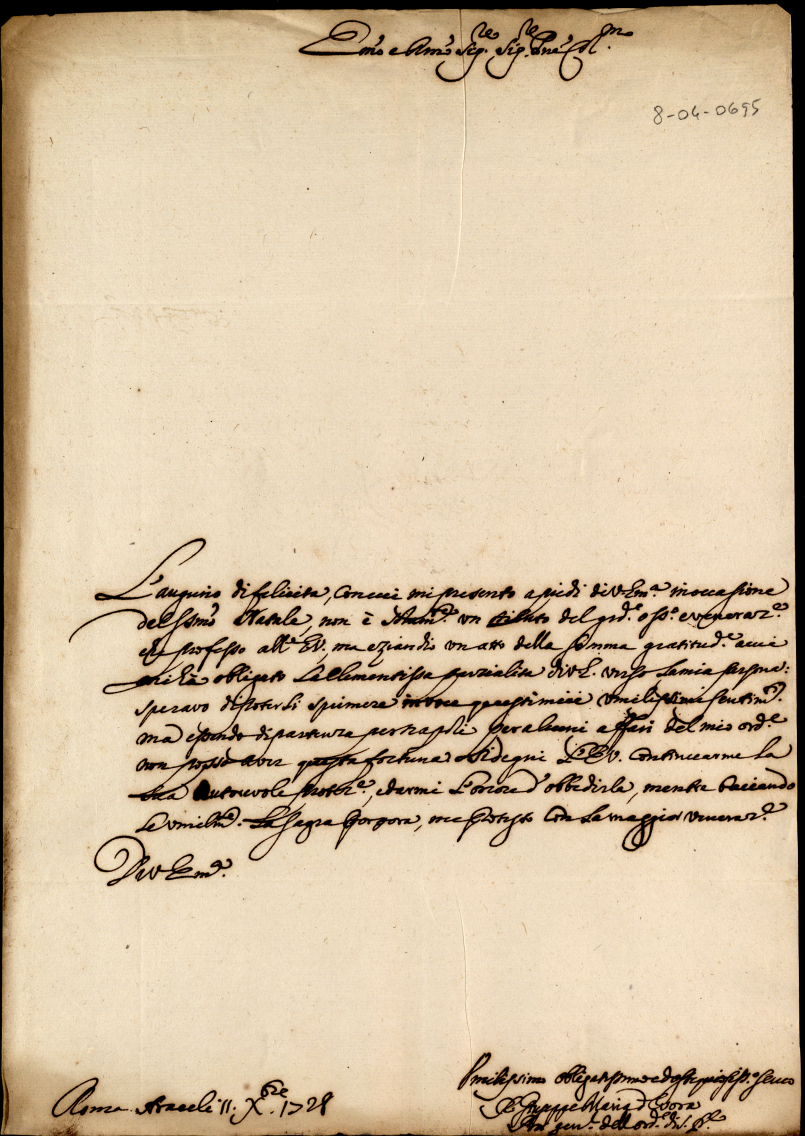 Em.º e R.mo Sig.re Sig.re P.ne Col.mo
8-04-0695
L'augurio di felicità, con cui mi presento a piedi di V. Em.ª in occasione
del S.smo Natale, non è un tributo del e veneraz.e
che professo all' E.V., ma eziandio un atto della somma gratitud.e a cui
mi hà obligato la Clementissa parzialità di V.E. verso la mia persona:
speravo di poterli esprimere in voce questi miei umilissimi sentim.ti
mà essendo di partenza per Napoli per alcuni affari del mio ord.e
non posso aver questa fortuna. Si degni l'E.V. continuarme la
sua autorevole protez.e, e darmi l'onore d'obbedirla, mentre baciando
le umilm.e la sagra porpora, me protesto con la maggior veneraz.e
Di V. Em.ª
Roma Araceli 11. Xbre. 1728
Umilissimo obligatissimo ed Servo
F. Giuseppe Maria d'Evora
gen. dell' ord.e di S. F.